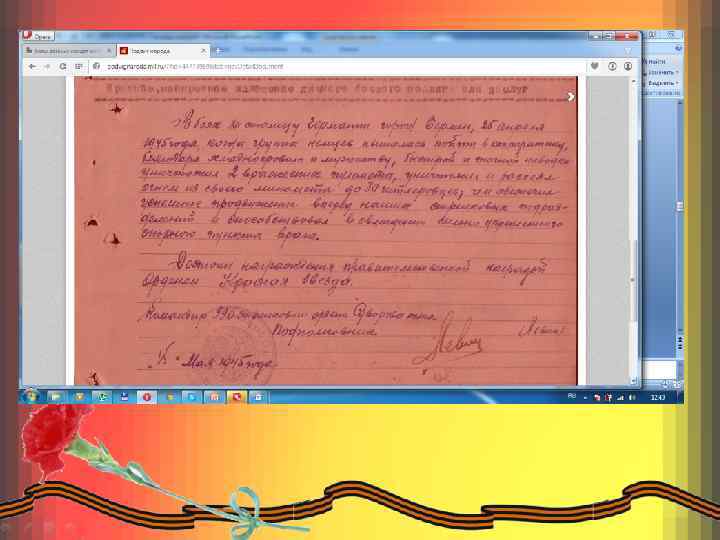 Opera
Подвиг народа
podvignaroda.mil.ru/?#id=
Найти
Заменить
Выделить
Краткое, конкретное изложение личного боевого подвига или заслуг
В боях за столицу Германии город Берлин, 25 апреля
1945 года, когда группа немцев пыталась пойти в контратаку,
благодаря хладнокровию и мужеству, быстрой и точной наводке
уничтожил 2 вражеских пулемета, уничтожил и рассеял
огнем из своего миномета до 30 гитлеровцев, чем обеспечил
успешное продвижение вперед наших стрелковых подраз-
делений и способствовал в овладении сильно укрепленного
опорного пункта врага.
Достоин награждения правительственной наградой
Орденом Красная звезда.
Командир орден Суворова
Подполковник
Левин
Мая 1945 года
RU
12:43